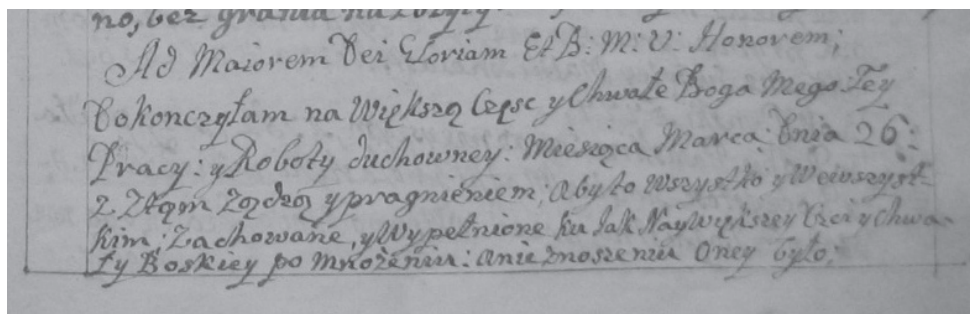 no, bez grania na
Ad Maiorem Dei Gloriam Et B: M: V: Honorem;
Dokonczyłam na Większą Częsc y Chwałe Boga Mego: Tey
Pracy: y Roboty duchowney: Miesiąca Marca: Dnia 26:
z Ządzą y pragnieniem; aby to wszystko y We wszyst-
kim; Zachowane, y Wypełnione ku Jak Naywiększey Czci y Chwa-
ły Boskiey po mnożeniu: a nie znoszeniu Oney było;